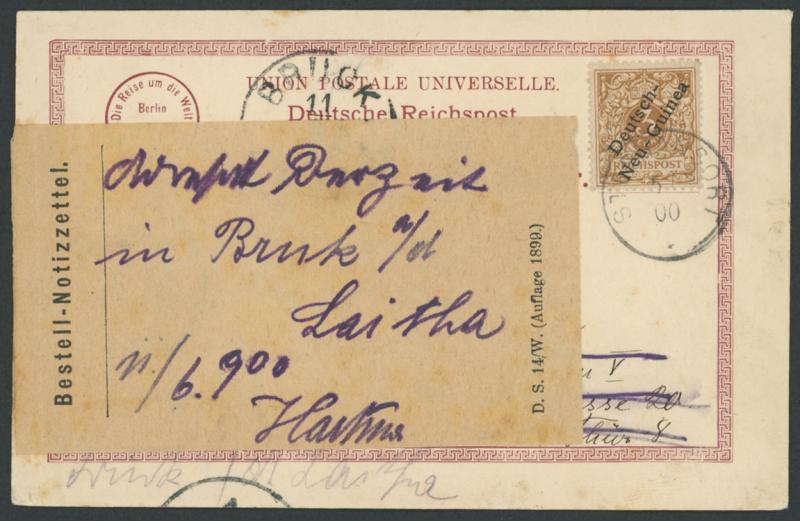 Die Reise um die Welt
Berlin
BRUCK
11
UNION POSTALE UNIVERSELLE.
Deutsche Reichspost
Deutsch-
Neu-Guinea
REICHSPOST
ST
SORT
00
Bestell-Notizzettel.
Adressat Derzeit
in Bruk a/d
Laitha
11/6.900
D. S. 14/W. (Auflage 1899.)
V
sse 20
8
Bruck a/d Laitha
1